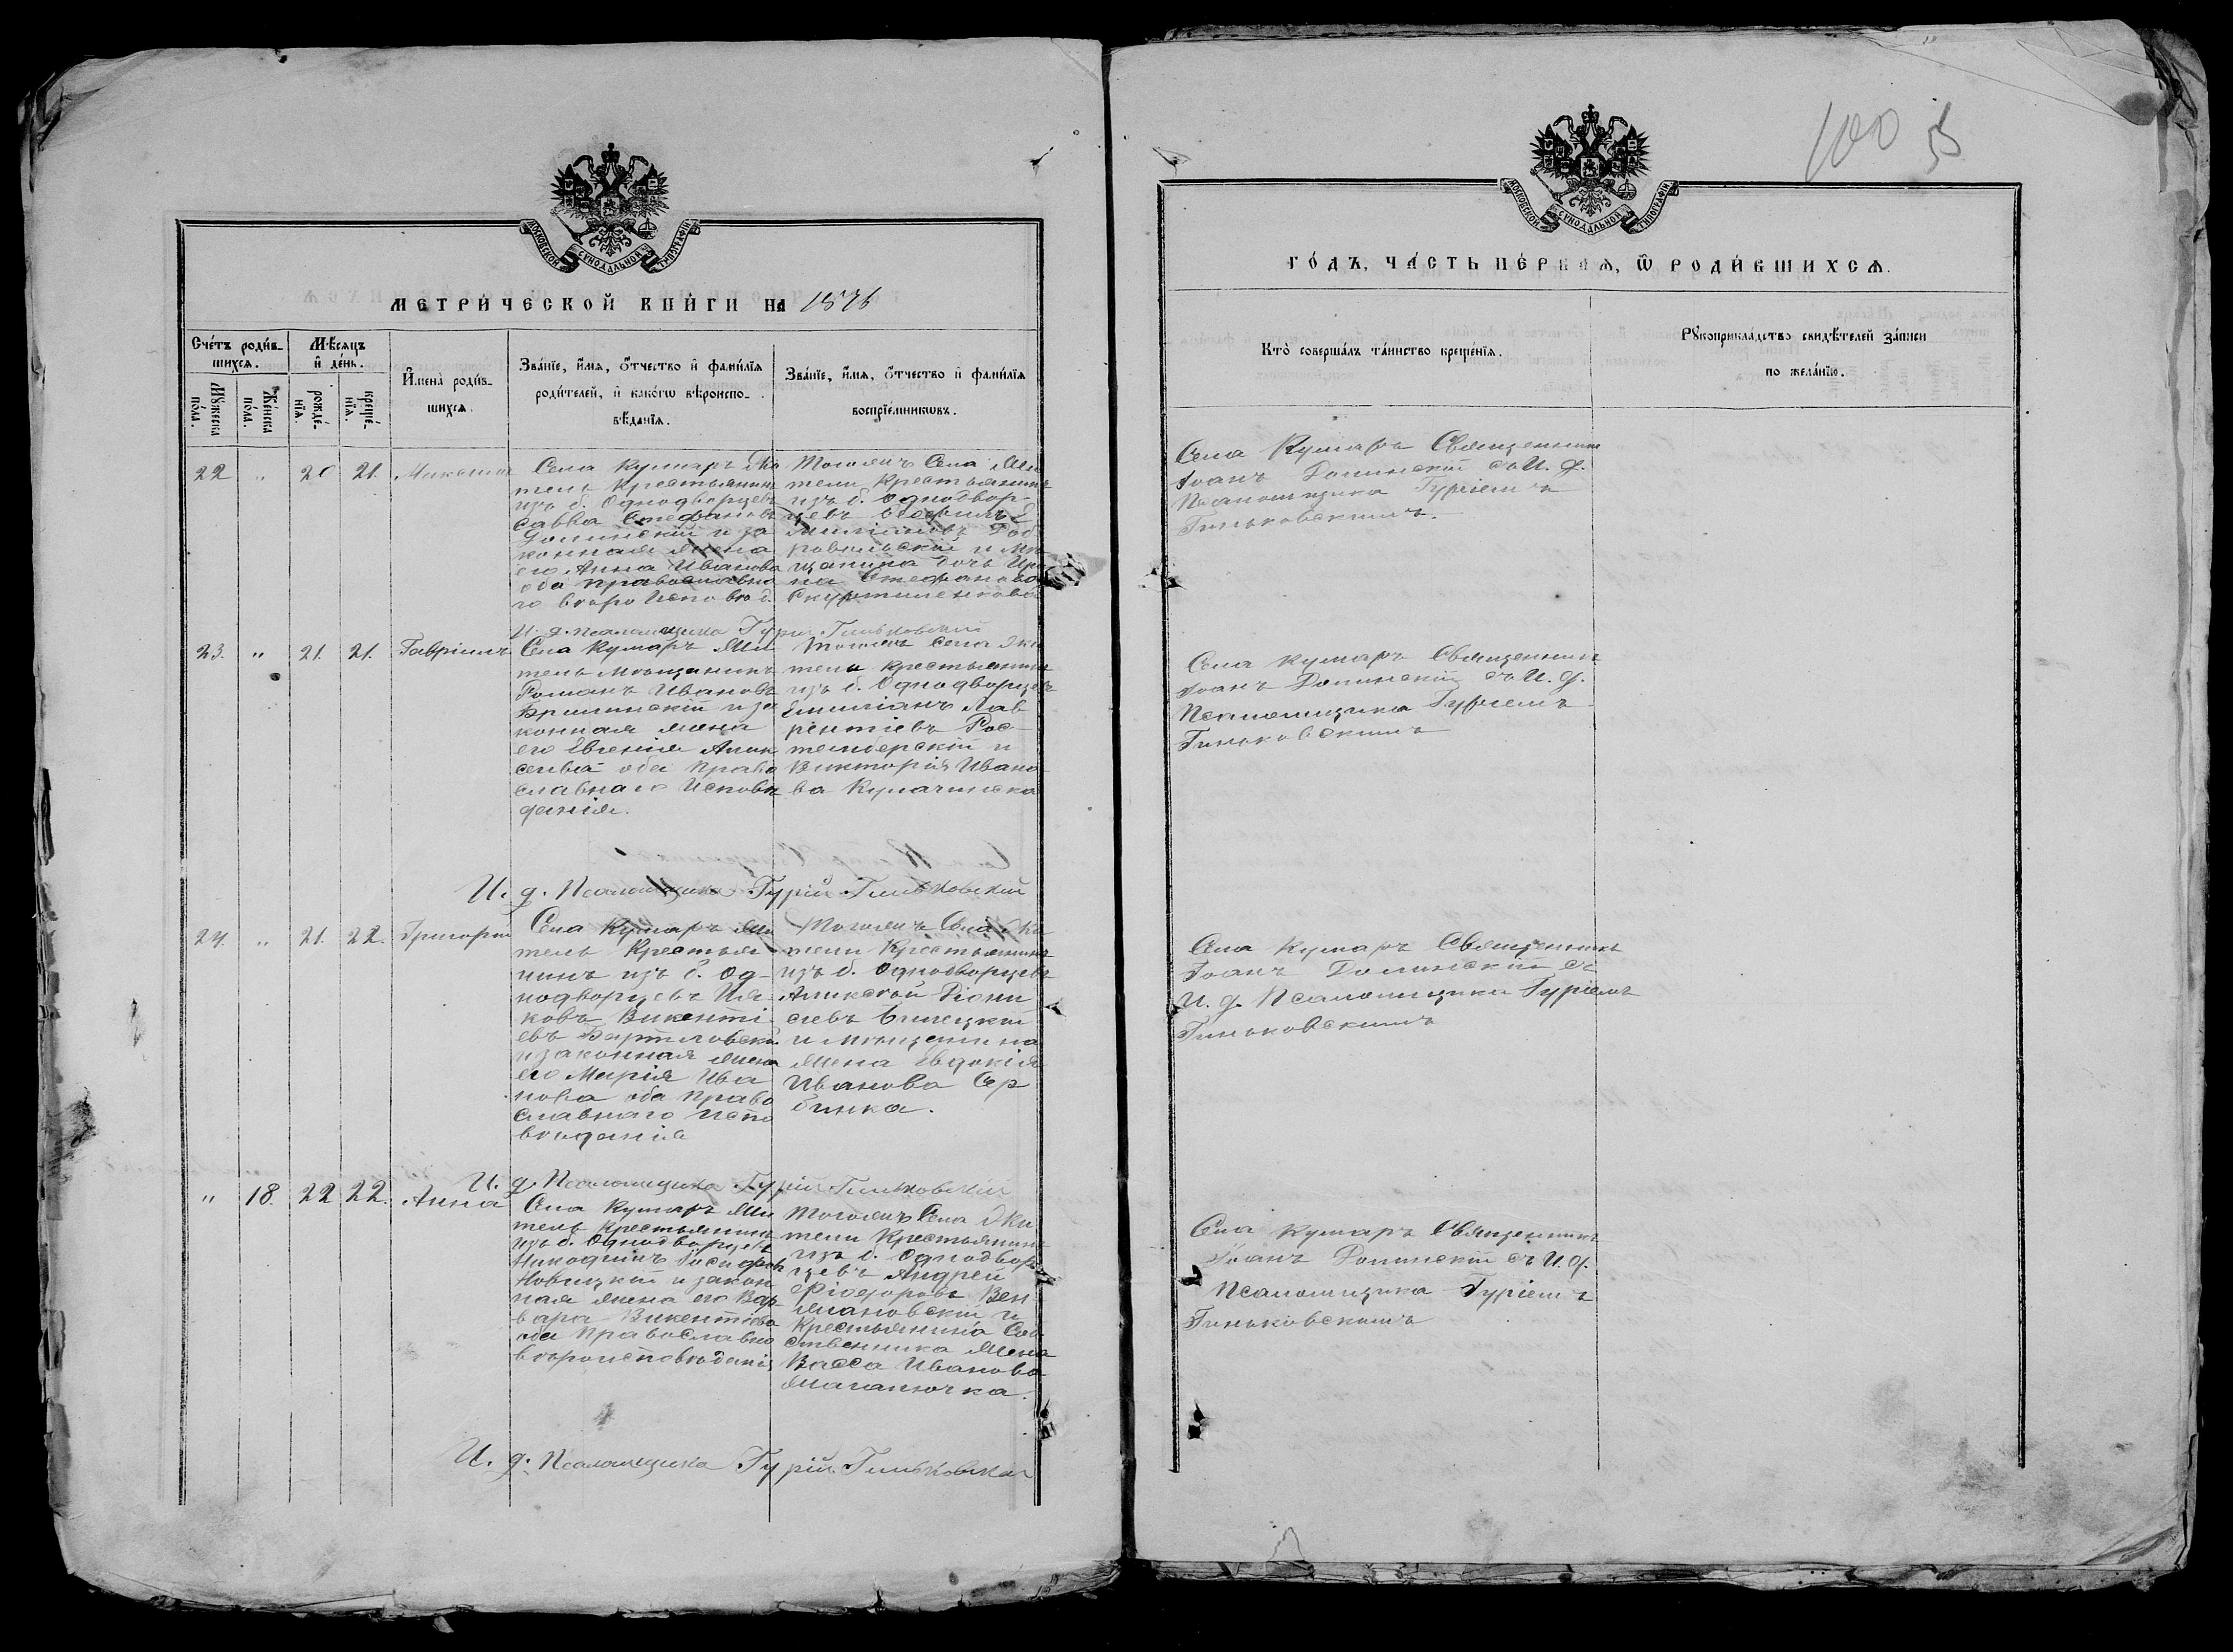 МОСКОВСКОЙ СѴНОДАЛЬНОЙ ТИПОГРАФІИ
МЕТРИ́ЧЕСКОЙ КНИ́ГИ НА 1876
Сче́тъ роди́в-
шихсѧ.
Мꙋ́жеска по́ла.
Же́нска по́ла.
Мѣ́сѧцъ и҆ де́нь.
рожде́-
нїѧ.
креще́-
нїѧ.
И҆мена̀ роди́в-
шихсѧ.
Зва́нїе, и҆́мѧ, ѻ҆́тчество и҆ фами́лїѧ
роди́телей, и҆ како́гѡ вѣроиспо-
вѣ́данїѧ.
Зва́нїе, и҆́мѧ, ѻ҆́тчество и҆ фами́лїѧ
воспрїе́мникѡвъ.
22 " 20 21.
Села Кушмаръ Жи
тель Крестьянинъ
изъ б. Однодворцевъ
Савва Стефановъ
Долинскій и за
конная жена
его Анна Иванова
оба православна
го вѣроисповѣд.
Тогожъ Села Жи
тели Крестьянинъ
изъ б. Однодвор-
цевъ
ковольскій и Мѣ
щанина дочь
на Стефанова
И. д. псаломщика Гурій Гиньковскій
23. " 21. 21. Гавріилъ
Села Кушмаръ Жи
тель мѣщанинъ
Романъ Ивановъ
и за
конная жена
его Евгенія Алек
сеева оба Право
славнаго Исповѣ
данія.
Тогожъ Села Жи
тели Крестьянинъ
изъ б. Однодворцевъ
Емиліанъ Лав
рентіевъ Рос-
темберскій и
Викторія Ивано
ва
И. д. Псаломщика Гурій Гиньковскій
24. " 21. 22. Григорій
Села Кушмаръ Жи
тель Крестья
нинъ изъ б. Од-
нодворцевъ Ия
ковъ Викенті
евъ Бартловскі
и законная жена
его Марія Ива
нова оба Право
славнаго испо
вѣданія
Тогожъ Села Жи
тели Крестьянинъ
изъ б. Однодворцевъ
Алексѣй Діони
сіевъ Билецкій
и мѣщанина
жена Евдокія
Иванова Сер
бинка.
И. д. Псаломщика Гурій Гиньковскій
" 18. 22 22. Анна
Села Кушмаръ Жи
тель Крестьянинъ
изъ б. Однодворцевъ
Никодимъ Іосифовъ
Новицкій и закон
ная жена его Вар-
вара Викентіева
оба Православна
вѣроисповѣданія
Тогожъ Села Жи
тели Крестьянинъ
изъ б. Однодвор
цевъ Андрей
Ѳіодоровъ Вен
жановскій и
Крестьянина Соб
ственника Жена
Васса Иванова
Маганючка.
И. д. Псаломщика Гурій Гиньковскій
100 55
МОСКОВСКОЙ СѴНОДАЛЬНОЙ ТИПОГРАФІИ
ГО́ДЪ, ЧА́СТЬ ПЕ́РВАѦ, Ѽ РОДИ́ВШИХСѦ.
Кто̀ соверша́лъ та́инство креще́нїѧ.
Рꙋкоприкла́дство свидѣ́телей за́писи
по жела́нїю.
Села Кушмаръ Священникъ
Іоанъ Долинскій съ И. д.
Псаломщика Гуріемъ
Гиньковскимъ.
Села Кушмаръ Священникъ
Іоанъ Долинскій съ И. д.
Псаломщика Гуріемъ
Гиньковскимъ
Села Кушмаръ Священникъ
Іоанъ Долинскій съ
И. д. Псаломщика Гуріемъ
Гиньковскимъ
Села Кушмаръ Священникъ
Іоанъ Долинскій съ И. д.
Псаломщика Гуріемъ
Гиньковскимъ